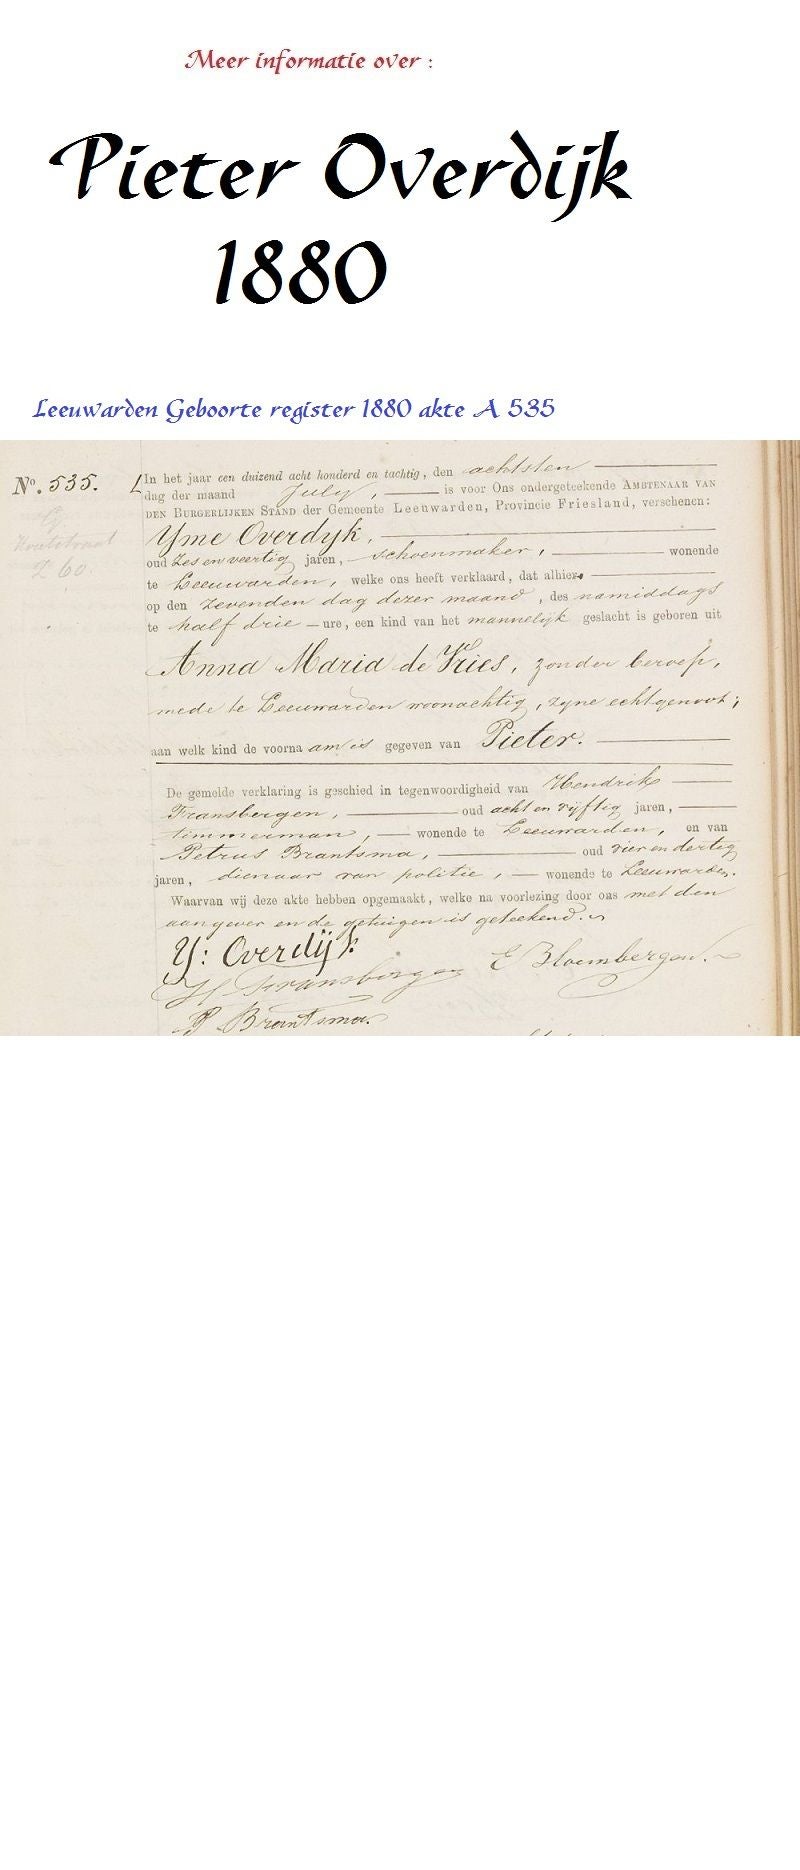 Meer informatie over :
Pieter Overdijk
1880
Leeuwarden Geboorte register 1880 akte A 535
No. 535.
In het jaar een duizend acht honderd en tachtig, den achtsten
dag der maand July, is voor Ons ondergeteekende AMBTENAAR VAN
DEN BURGERLIJKEN STAND der Gemeente Leeuwarden, Provincie Friesland, verschenen:
Yme Overdyk,
oud zes en veertig jaren, schoenmaker, wonende
te Leeuwarden, welke ons heeft verklaard, dat alhier
op den zevenden dag dezer maand, des namiddags
te half drie ure, een kind van het mannelijk geslacht is geboren uit
Anna Maria de Vries, zonder beroep,
mede te Leeuwarden woonachtig, zyne echtgenoot;
aan welk kind de voornaam is gegeven van Pieter.
De gemelde verklaring is geschied in tegenwoordigheid van Hendrik
Fransbergen, oud acht en vijftig jaren,
timmerman, wonende te Leeuwarden, en van
Petrus Brantsma, oud vier en dertig
jaren, dienaar van politie, wonende te Leeuwarden.
Waarvan wij deze akte hebben opgemaakt, welke na voorlezing door ons met den
aangever en de getuigen is geteekend.
Y: Overdijk
H Fransbergen E Bloembergen.
P Brantsma.